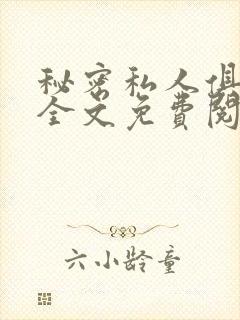 秘密私人俱
全文免费阅
六小龄童